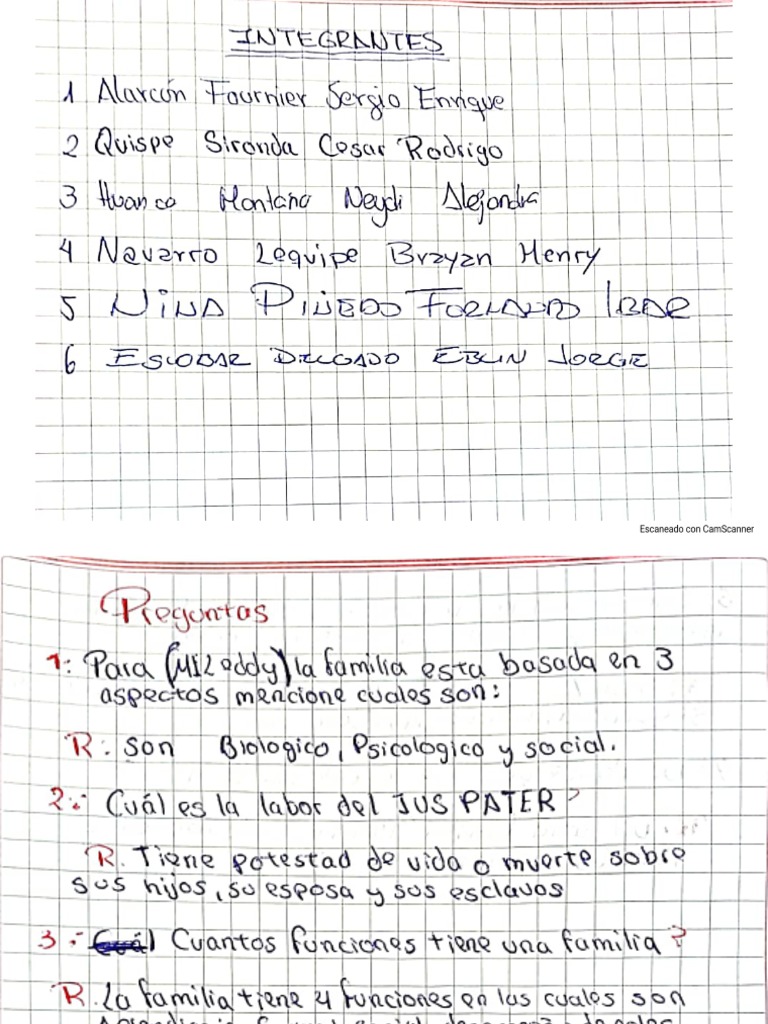 INTEGRANTES
1 Alarcón Fournier Sergio Enrique
2 Quispe Sironda Cesar Rodrigo
3 Huanca Montaño Neydi Alejandra
4 Navarro Lequipe Brayan Henry
5 NiNA PIÑEDO FERNANDO IBAR
6 ESCOBAR DELGADO EBLIN JORGE
Escaneado con CamScanner
Preguntas
1: Para (Mi2oddy) la familia esta basada en 3
aspectos mencione cuales son:
R: son Biologico, Psicologico y social.
2: Cuál es la labor del JUS PATER?
R. Tiene potestad de vida o muerte sobre
sus hijos, su esposa y sus esclavos
3: Cuantos funciones tiene una familia?
R. La familia tiene 4 funciones en las cuales son